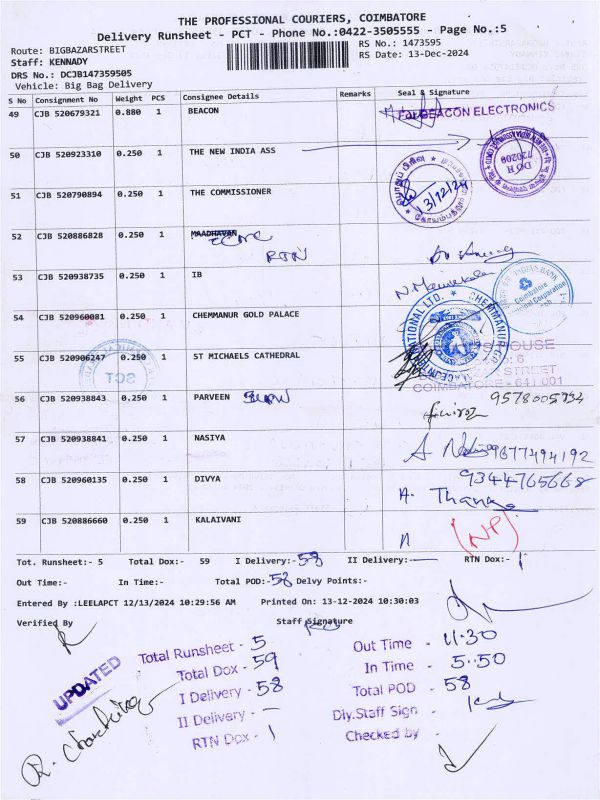 THE PROFESSIONAL COURIERS, COIMBATORE
Delivery Runsheet - PCT - Phone No.:0422-3505555 - Page No.:5
Route: BIGBAZARSTREET
RS No.: 1473595
Staff: KENNADY
RS Date: 13-Dec-2024
DRS No.: DCJB147359505
Vehicle: Big Bag Delivery
S No Consignment No Weight PCS Consignee Details Remarks Seal & Signature
49 CJB 520679321 0.880 1 BEACON For BEACON ELECTRONICS
50 CJB 520923310 0.250 1 THE NEW INDIA ASS
DO II
720200
51 CJB 520790894 0.250 1 THE COMMISSIONER 13/12/24
52 CJB 520886828 0.250 1 MAADHAVAN
RTN
53 CJB 520938735 0.250 1 IB
INDIAN BANK
Coimbatore
54 CJB 520960081 0.250 1 CHEMMANUR GOLD PALACE
55 CJB 520906247 0.250 1 ST MICHAELS CATHEDRAL
HOUSE
STREET
COIMBATORE - 641 001
SCT
56 CJB 520938843 0.250 1 PARVEEN 9578005734
57 CJB 520938841 0.250 1 NASIYA 9677494192
58 CJB 520960135 0.250 1 DIVYA 9344765668
A. Thanks
59 CJB 520886660 0.250 1 KALAIVANI (NP)
Tot. Runsheet:- 5 Total Dox:- 59 I Delivery:- 58 II Delivery:- RTN Dox:- 1
Out Time:- In Time:- Total POD:- 58 Delvy Points:-
Entered By :LEELAPCT 12/13/2024 10:29:56 AM Printed On: 13-12-2024 10:30:03
Verified By Staff Signature
UPDATED
Total Runsheet - 5
Total Dox - 59
I Delivery - 58
II Delivery - —
RTN Dox - 1
Out Time - 11.30
In Time - 5.50
Total POD - 58
Dly.Staff Sign -
Checked by -